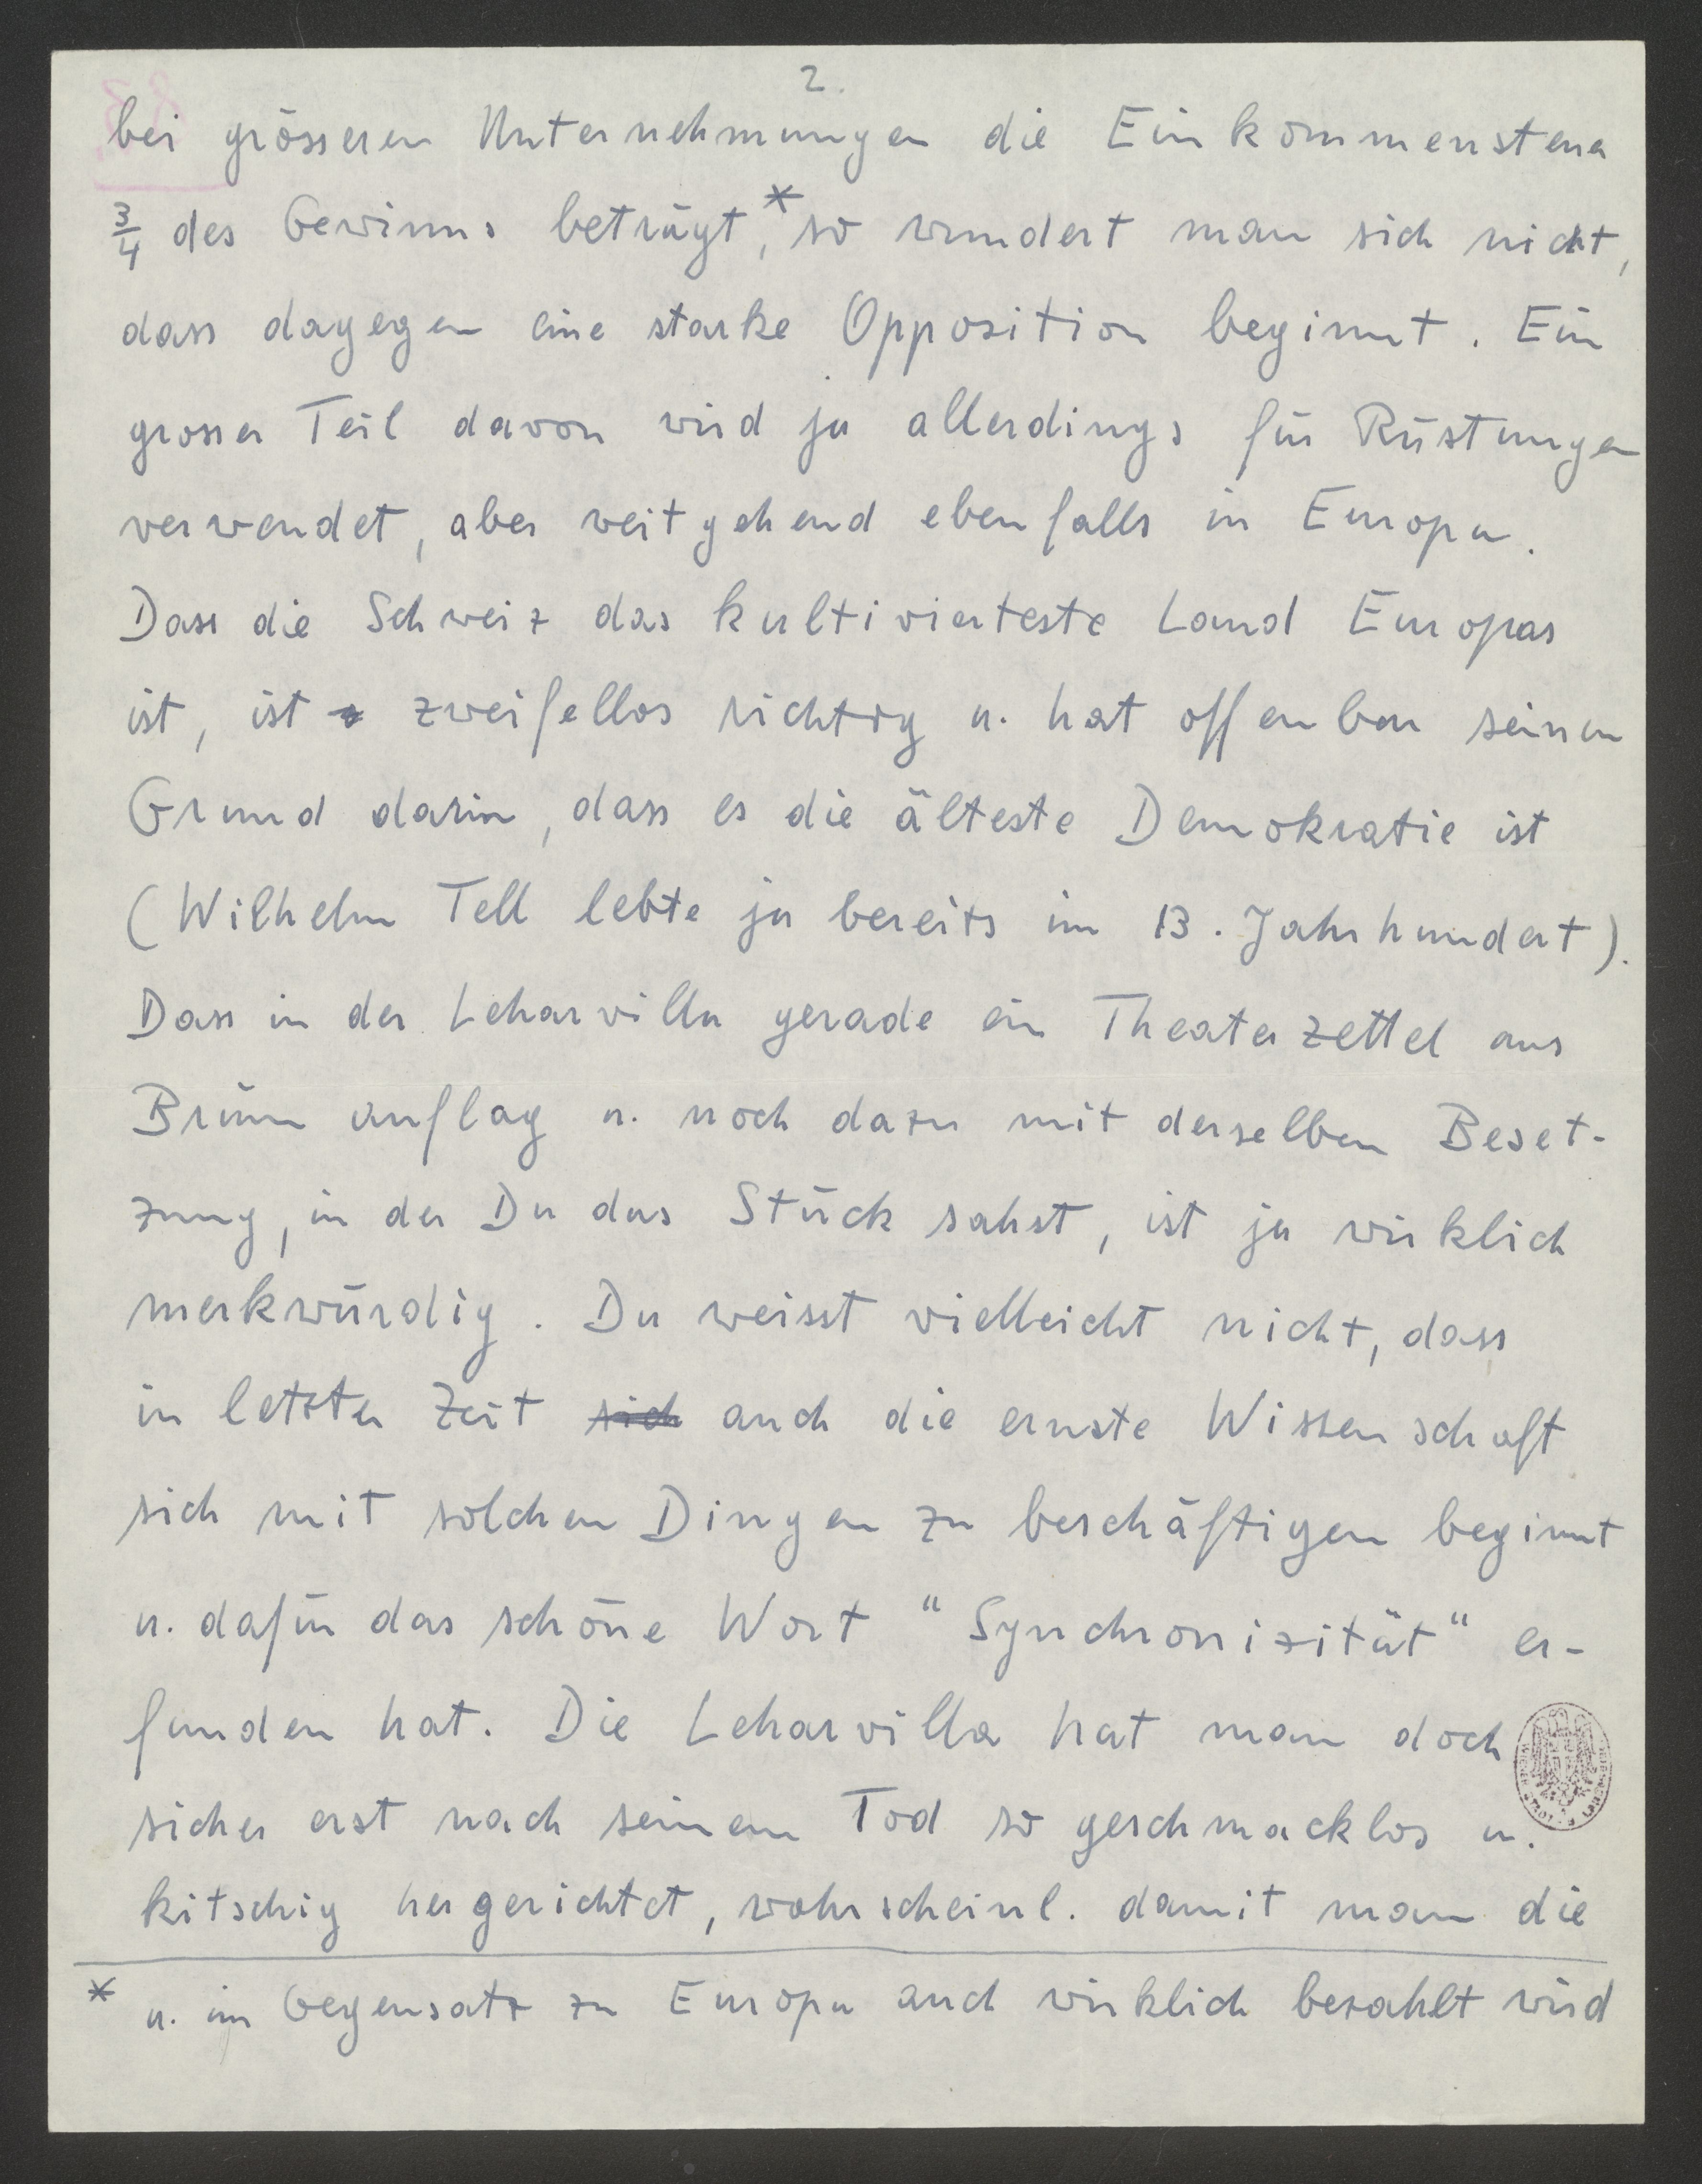 2.
bei grösseren Unternehmungen die Einkommensteuer
3/4 des Gewinns beträgt,* so wundert man sich nicht,
dass dagegen eine starke Opposition beginnt. Ein
grosser Teil davon wird ja allerdings für Rüstungen
verwendet, aber weitgehend ebenfalls in Europa.
Dass die Schweiz das kultivierteste Land Europas
ist, ist zweifellos richtig u. hat offenbar seinen
Grund darin, dass es die älteste Demokratie ist
(Wilhelm Tell lebte ja bereits im 13. Jahrhundert).
Dass in der Leharvilla gerade ein Theaterzettel aus
Brünn auflag u. noch dazu mit derselben Beset-
zung, in der Du das Stück sahst, ist ja wirklich
merkwürdig. Du weisst vielleicht nicht, dass
in letzter Zeit sich auch die ernste Wissenschaft
sich mit solchen Dingen zu beschäftigen beginnt
u. dafür das schöne Wort "Synchronizität" er-
funden hat. Die Leharvilla hat man doch
sicher erst nach seinem Tod so geschmacklos u.
kitschig hergerichtet, wahrscheinl. damit man die
* u. im Gegensatz zu Europa auch wirklich bezahlt wird